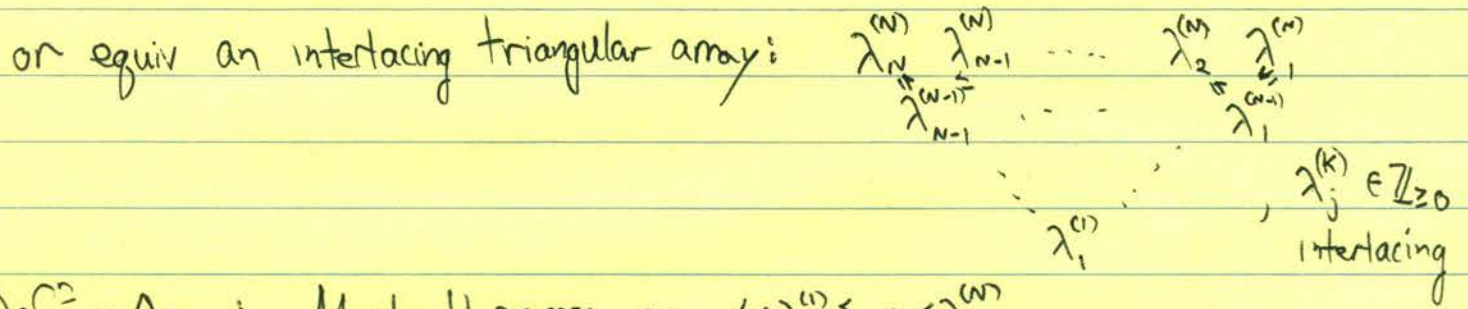 or equiv an interlacing triangular array: λ_N^{(N)} λ_{N-1}^{(N)} ---- λ_2^{(N)} λ_1^{(N)}
λ_{N-1}^{(N-1)} . - - λ_1^{(N-1)}
λ_1^{(1)} , λ_j^{(K)} ∈ ℤ_{≥0}
interlacing